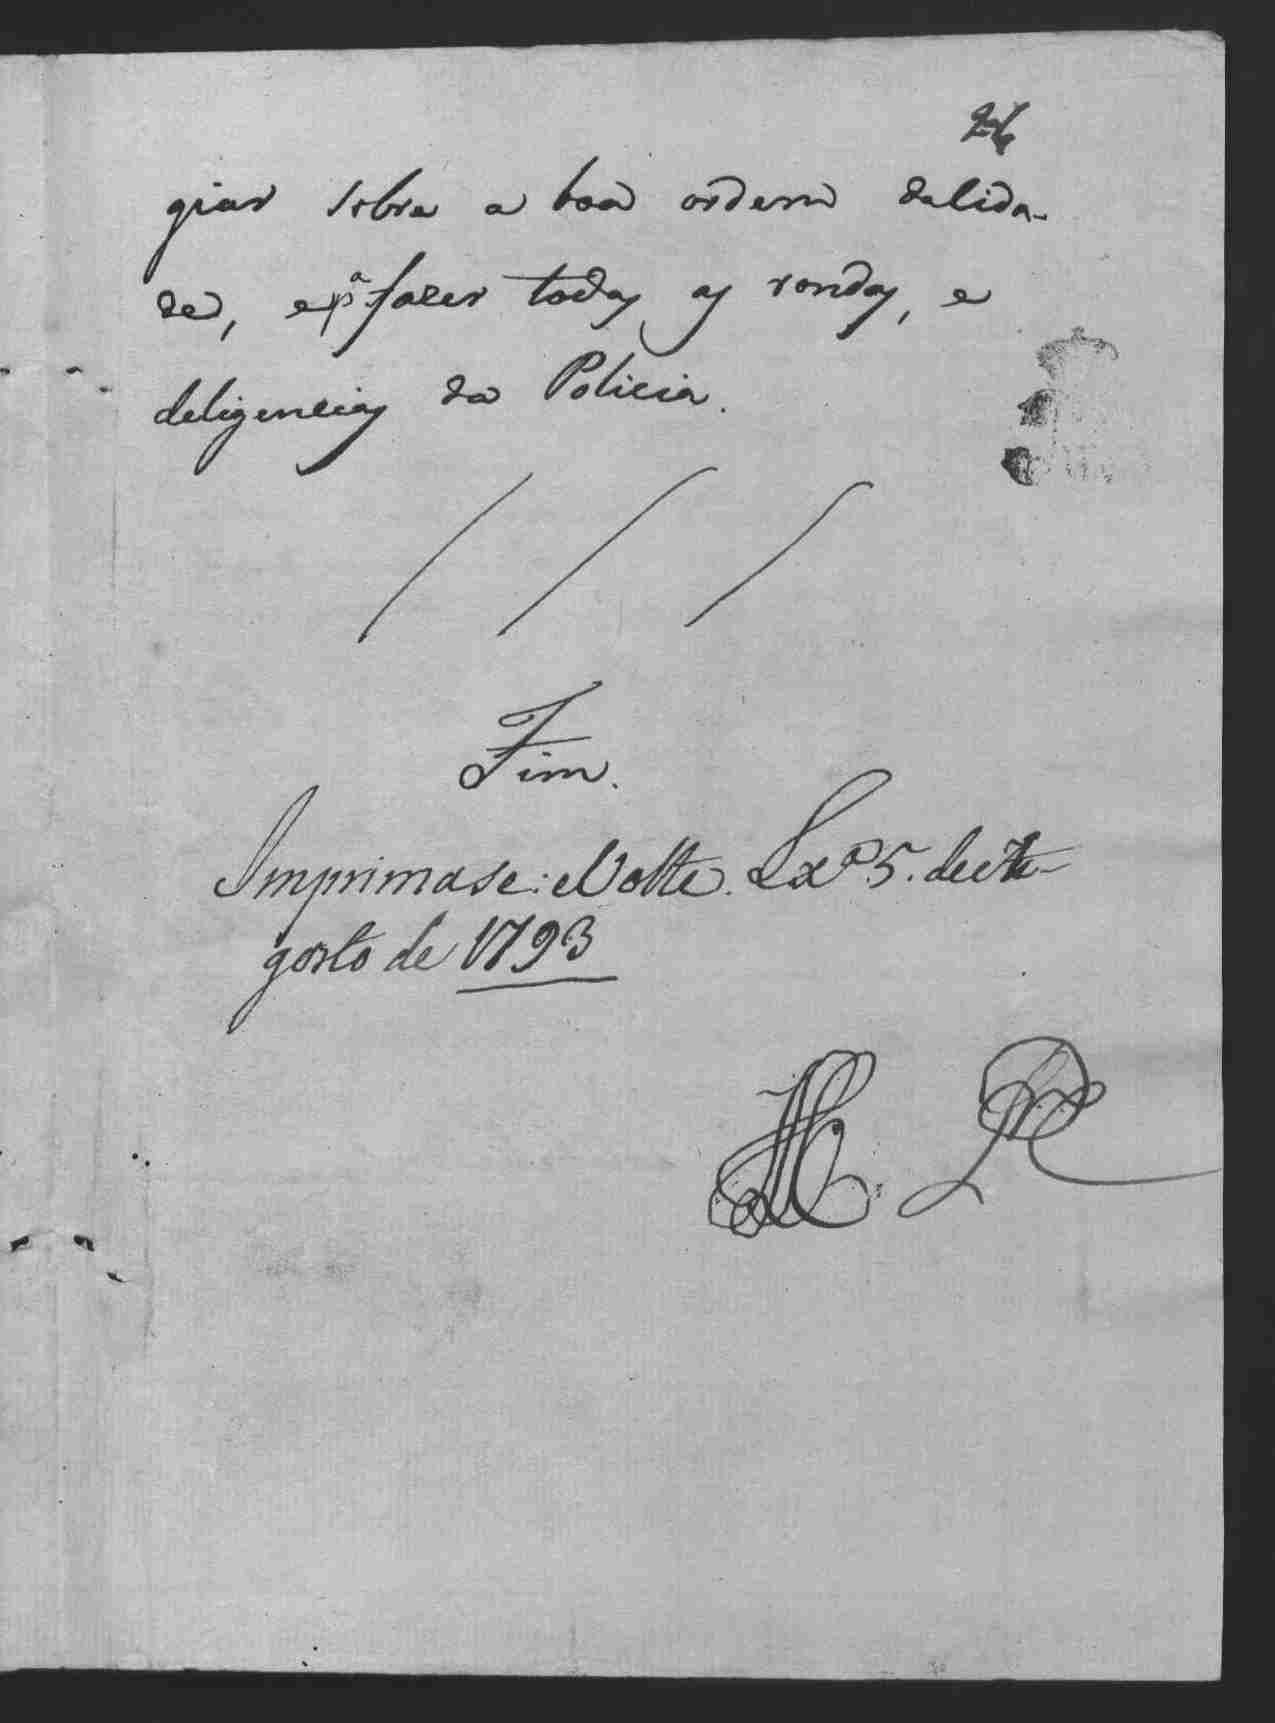 26
giar sobre a boa ordem da Cida-
de, e p.ª fazer todas as rondas, e
deligencias da Policia.
Fim.
Imprimase: e Volte. Lx.ª 5. de A-
gosto de 1793